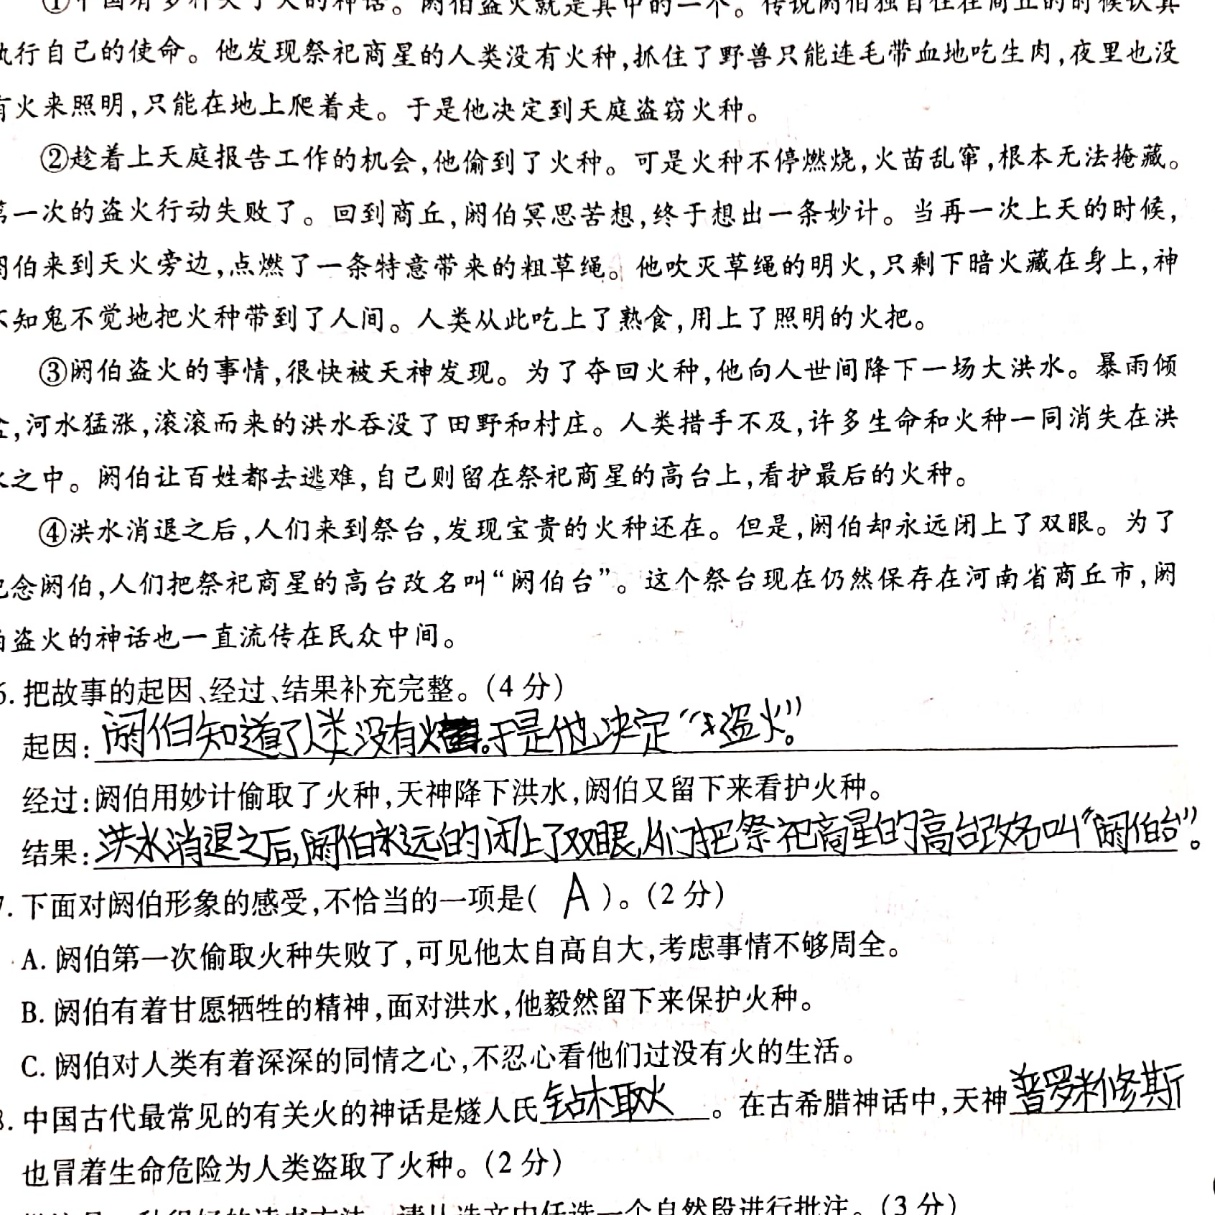 ①中国有多种关于火的神话。阏伯盗火就是其中的一个。传说阏伯独自住在商丘的时候认真
执行自己的使命。他发现祭祀商星的人类没有火种,抓住了野兽只能连毛带血地吃生肉,夜里也没
有火来照明,只能在地上爬着走。于是他决定到天庭盗窃火种。
②趁着上天庭报告工作的机会,他偷到了火种。可是火种不停燃烧,火苗乱窜,根本无法掩藏。
第一次的盗火行动失败了。回到商丘,阏伯冥思苦想,终于想出一条妙计。当再一次上天的时候,
阏伯来到天火旁边,点燃了一条特意带来的粗草绳。他吹灭草绳的明火,只剩下暗火藏在身上,神
不知鬼不觉地把火种带到了人间。人类从此吃上了熟食,用上了照明的火把。
③阏伯盗火的事情,很快被天神发现。为了夺回火种,他向人世间降下一场大洪水。暴雨倾
盆,河水猛涨,滚滚而来的洪水吞没了田野和村庄。人类措手不及,许多生命和火种一同消失在洪
水之中。阏伯让百姓都去逃难,自己则留在祭祀商星的高台上,看护最后的火种。
④洪水消退之后,人们来到祭台,发现宝贵的火种还在。但是,阏伯却永远闭上了双眼。为了
纪念阏伯,人们把祭祀商星的高台改名叫“阏伯台”。这个祭台现在仍然保存在河南省商丘市,阏
伯盗火的神话也一直流传在民众中间。
6.把故事的起因、经过、结果补充完整。(4分)
起因:阏伯知道了人类没有火 。于是他决定“盗火”。
经过:阏伯用妙计偷取了火种,天神降下洪水,阏伯又留下来看护火种。
结果:洪水消退之后,阏伯永远的闭上了双眼,人们把祭祀商星的高台改名叫“阏伯台”。
7.下面对阏伯形象的感受,不恰当的一项是( A )。(2分)
A.阏伯第一次偷取火种失败了,可见他太自高自大,考虑事情不够周全。
B.阏伯有着甘愿牺牲的精神,面对洪水,他毅然留下来保护火种。
C.阏伯对人类有着深深的同情之心,不忍心看他们过没有火的生活。
8.中国古代最常见的有关火的神话是燧人氏钻木取火。在古希腊神话中,天神普罗米修斯
也冒着生命危险为人类盗取了火种。(2分)
请从选文中任选一个自然段进行批注。(3分)